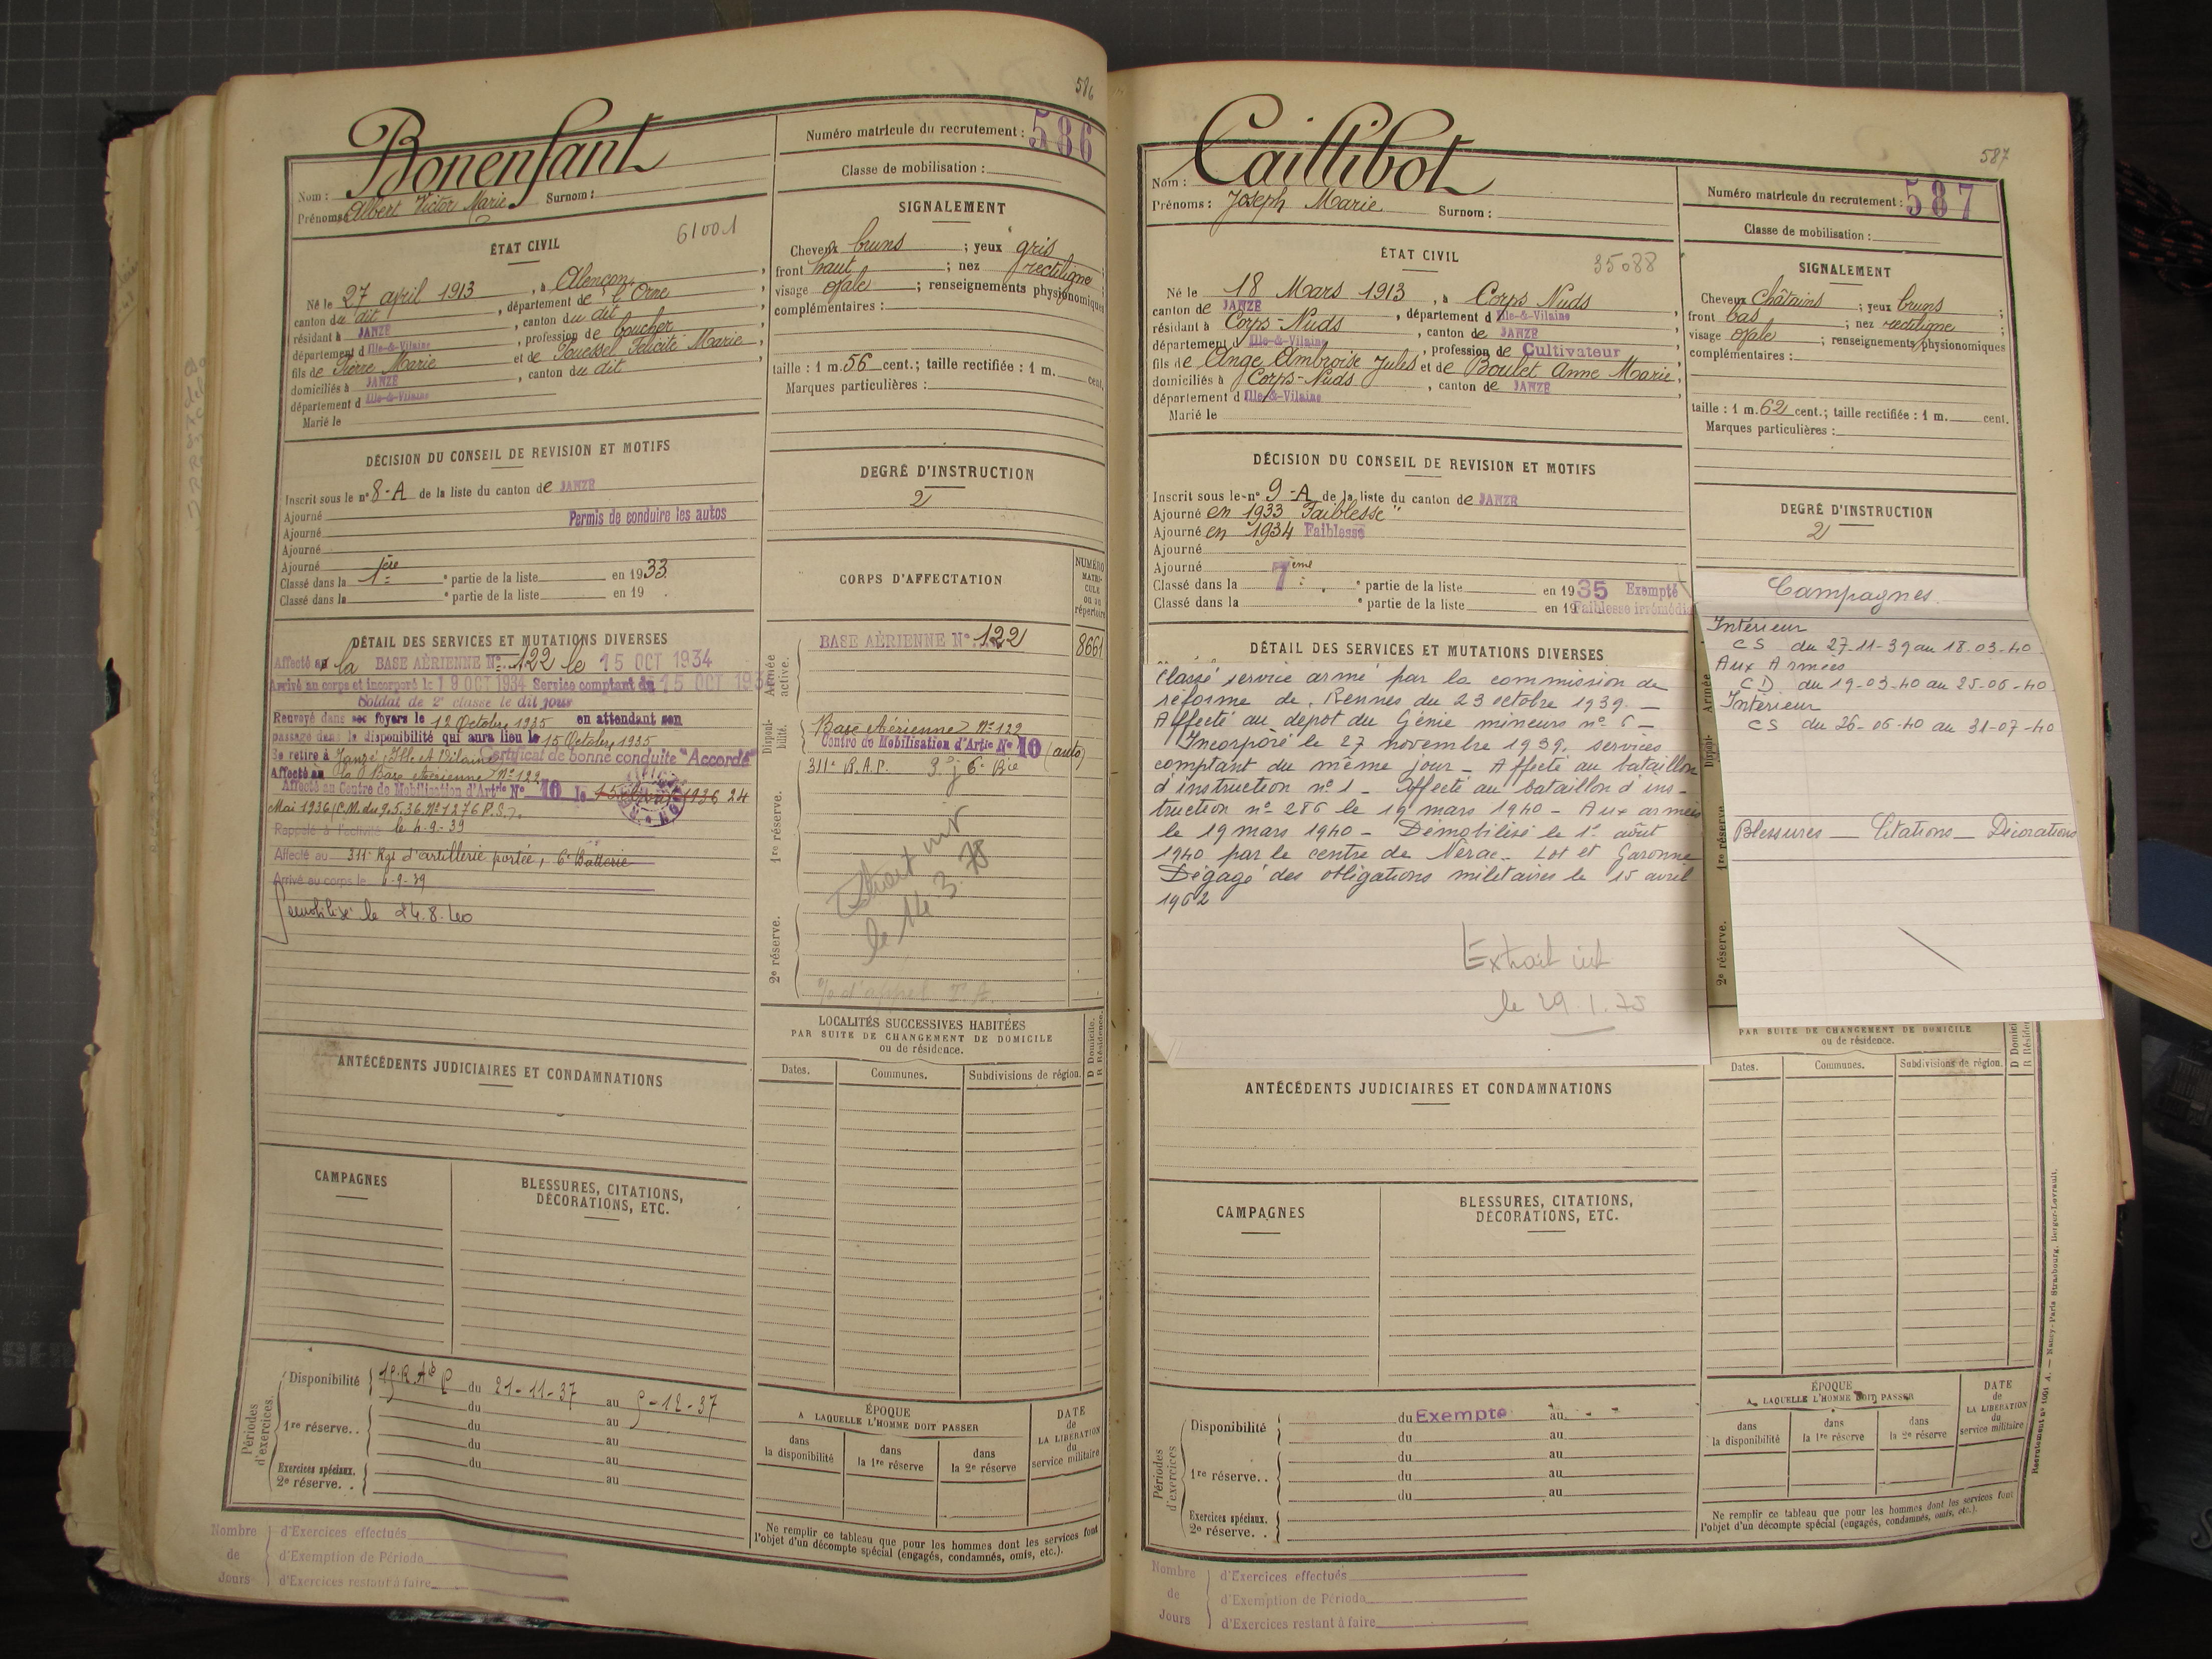 586
Bonenfant
Nom :
Prénoms : Albert Victor Marie Surnom :
61001
ÉTAT CIVIL
Né le 27 avril 1913, à Alençon,
canton du dit, département de l'Orne,
résidant à JANZÉ, canton du dit,
département d Ille-&-Vilaine, profession de boucher
fils de Pierre Marie et de Touessel Félicité Marie,
domiciliés à JANZÉ, canton du dit
département d Ille-&-Vilaine
Marié le
DÉCISION DU CONSEIL DE REVISION ET MOTIFS
Inscrit sous le n° 8-A de la liste du canton de JANZÉ
Ajourné Permis de conduire les autos
Ajourné
Ajourné
Ajourné
Classé dans la 1ère partie de la liste en 1933.
Classé dans la e partie de la liste en 19 .
DÉTAIL DES SERVICES ET MUTATIONS DIVERSES
Affecté à la BASE AÉRIENNE N° 122 le 15 OCT 1934
Arrivé au corps et incorporé le 19 OCT 1934 Service comptant du 15 OCT 1934
Soldat de 2e classe le dit jour
Renvoyé dans ses foyers le 12 Octobre 1935 en attendant son
passage dans la disponibilité qui aura lieu le 15 Octobre 1935
Se retire à Janzé, Ille et Vilaine Certificat de bonne conduite "Accordé"
Affecté à la Base Aérienne N° 122
Affecté au Centre de Mobilisation d'Artie N° 10 le 1936 24
Mai 1936 (C.M. du 9.5.36. N° 1276 P.S.).
Rappelé à l'activité le 4-9-39
Affecté au 311e Rgt d'artillerie portée, 6e Batterie
Arrivé au corps le 4-9-39
Démobilisé le 24.8.40
ANTÉCÉDENTS JUDICIAIRES ET CONDAMNATIONS
CAMPAGNES
BLESSURES, CITATIONS,
DÉCORATIONS, ETC.
Périodes d'exercices.
Disponibilité du 21-11-37 au 9-12-37
du au
1re réserve. . du au
du au
du au
Exercices spéciaux.
2e réserve. . au
Nombre de Jours
d'Exercices effectués
d'Exemption de Période
d'Exercices restant à faire
Numéro matricule du recrutement : 586
Classe de mobilisation :
SIGNALEMENT
Cheveux bruns ; yeux gris ;
front haut ; nez rectiligne ;
visage ovale ; renseignements physionomiques
complémentaires :
taille : 1 m. 56 cent.; taille rectifiée : 1 m. cent.
Marques particulières :
DEGRÉ D'INSTRUCTION
2
CORPS D'AFFECTATION
NUMÉRO MATRICULE ou au répertoire
Armée active.
BASE AÉRIENNE N° 122 8661
Disponibilité.
Base Aérienne N° 122
Centre de Mobilisation d'Artie N° 10 (auto)
311e R.A.P. 6e Bie
1re réserve.
le 14 3.75
2e réserve.
LOCALITÉS SUCCESSIVES HABITÉES
PAR SUITE DE CHANGEMENT DE DOMICILE
ou de résidence.
D Domicile.
R Résidence.
Dates. Communes. Subdivisions de région.
ÉPOQUE
A LAQUELLE L'HOMME DOIT PASSER
dans la disponibilité
dans la 1re réserve
dans la 2e réserve
DATE de LA LIBÉRATION du service militaire
Ne remplir ce tableau que pour les hommes dont les services font
l'objet d'un décompte spécial (engagés, condamnés, omis, etc.).
587
Caillibot
Nom :
Prénoms : Joseph Marie Surnom :
35088
ÉTAT CIVIL
Né le 18 Mars 1913, à Corps Nuds
canton de JANZÉ, département d Ille-&-Vilaine,
résidant à Corps-Nuds, canton de JANZÉ
département d Ille-&-Vilaine, profession de Cultivateur
fils de Ange Ambroise Jules et de Boulet Anne Marie,
domiciliés à Corps-Nuds, canton de JANZÉ
département d Ille-&-Vilaine
Marié le
DÉCISION DU CONSEIL DE REVISION ET MOTIFS
Inscrit sous le n° 9-A de la liste du canton de JANZÉ
Ajourné en 1933 "Faiblesse"
Ajourné en 1934 Faiblesse
Ajourné
Ajourné
Classé dans la 7ème partie de la liste en 1935 Exempté
Classé dans la e partie de la liste en 19 Faiblesse irrémédi
DÉTAIL DES SERVICES ET MUTATIONS DIVERSES
Classé service armé par la commission de
réforme de Rennes du 23 octobre 1939. —
Affecté au dépôt du Génie mineurs n° 6 —
Incorporé le 27 novembre 1939. services
comptant du même jour — Affecté au bataillon
d'instruction n° 1 — Affecté au bataillon d'ins-
truction n° 286 le 19 mars 1940 — Aux armées
le 19 mars 1940 — Démobilisé le 1e août
1940 par le centre de Nérac — Lot et Garonne
Dégagé des obligations militaires le 15 avril
1962
Extrait
le 29.1.75
ANTÉCÉDENTS JUDICIAIRES ET CONDAMNATIONS
CAMPAGNES
BLESSURES, CITATIONS,
DÉCORATIONS, ETC.
Périodes d'exercices
Disponibilité du Exempté au
du au
du au
1re réserve. . du au
du au
Exercices spéciaux.
2e réserve. .
Nombre de Jours
d'Exercices effectués
d'Exemption de Période
d'Exercices restant à faire
Numéro matricule du recrutement : 587
Classe de mobilisation :
SIGNALEMENT
Cheveux châtains ; yeux bruns ;
front bas ; nez rectiligne ;
visage ovale ; renseignements physionomiques
complémentaires :
taille : 1 m. 62 cent.; taille rectifiée : 1 m. cent.
Marques particulières :
DEGRÉ D'INSTRUCTION
2
Campagnes
Intérieur
CS du 27-11-39 au 18.03-40
Aux Armées
CD du 19-03-40 au 25-06-40
Intérieur
CS du 26-06-40 au 31-07-40
Blessures — Citations — Décorations
Armée
Disponi-
1re réserve
2e réserve.
PAR SUITE DE CHANGEMENT DE DOMICILE
ou de résidence.
D Domici
R Résiden
Dates. Communes. Subdivisions de région
ÉPOQUE
A LAQUELLE L'HOMME DOIT PASSER
dans la disponibilité
dans la 1re réserve
dans la 2e réserve
DATE de LA LIBÉRATION du service militaire
Ne remplir ce tableau que pour les hommes dont les services font
l'objet d'un décompte spécial (engagés, condamnés, omis, etc.).
Recrutement n° 1001 A. — Nancy-Paris Strasbourg, Berger-Levrault.